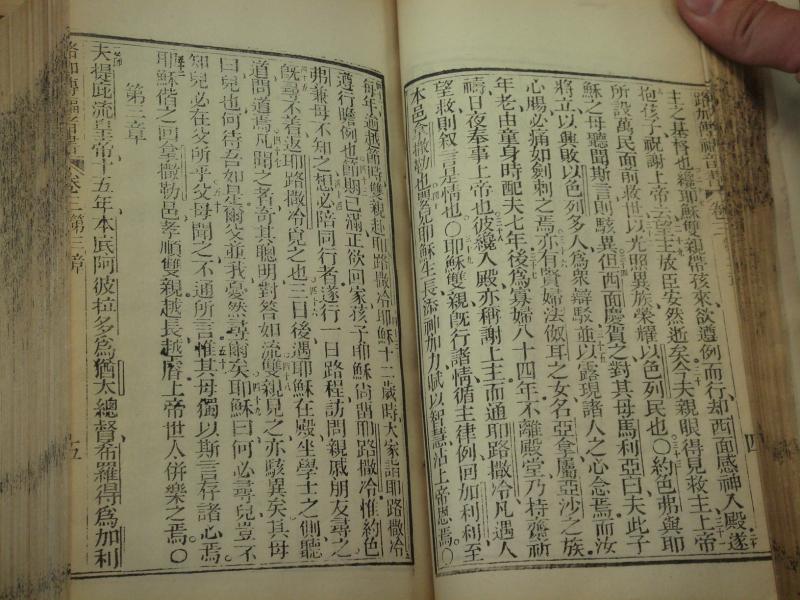 主之基督也、纔耶穌雙親帶孩來、欲遵例而行、却西面感神入殿、遂
抱孩子祝謝上帝云、望主放臣安然逝矣、今夫親眼得見救主、上帝
所設萬民面前救世、以光照異族、榮耀以色列民也〇約色弗與耶
穌之母聽聞斯言則駭異、但西面慶賀之、對其母馬利亞曰、夫此子
將立以興敗以色列多人、為衆辯駁、並以露現諸人之心念焉、而汝
心賜必痛如劍刺之焉、亦有賢婦法倣耳之女名亞拿、屬亞沙之族、
年老、由童身時配夫七年後為寡婦、八十四年不離殿堂、乃持齋祈
禱、日夜奉事上帝也、彼纔入殿、亦稱謝上主、而通耶路撒冷凡遇人
望救則叙言是情也〇耶穌雙親既行諸情循主律例、回加利利至
本邑拿撒勒也、嬰兒耶穌生長、添神加力、賦以智慧、沾上帝恩焉〇
每年過越節時、雙親赴耶路撒冷、耶穌十二歲時、大家詣耶路撒冷
遵行瞻例也、節期已滿、正欲回家、孩子耶穌尚留耶路撒冷、惟約色
弗兼母不知之、想必陪同行者、遂行一日路程、訪問親戚朋友尋之、
既尋不着、返耶路撒冷覓之也、三日後遇耶穌在殿、坐學士之側、聽
道問道焉、凡聞之者、奇其聰明、對答如流、雙親見之亦駭異矣、其母
曰、兒也、何待吾如是、爾父並我憂然尋爾矣、耶穌曰、何必尋兒、豈不
知兒必在父所乎、父母聞之、不通所言、惟其母獨以斯言存諸心焉、
耶穌偕之回拿撒勒邑、孝順雙親、越長越睿、上帝世人併樂之焉〇
第三章
夫提庇流皇帝十五年、本底阿彼拉多為猶太總督、希羅得為加利